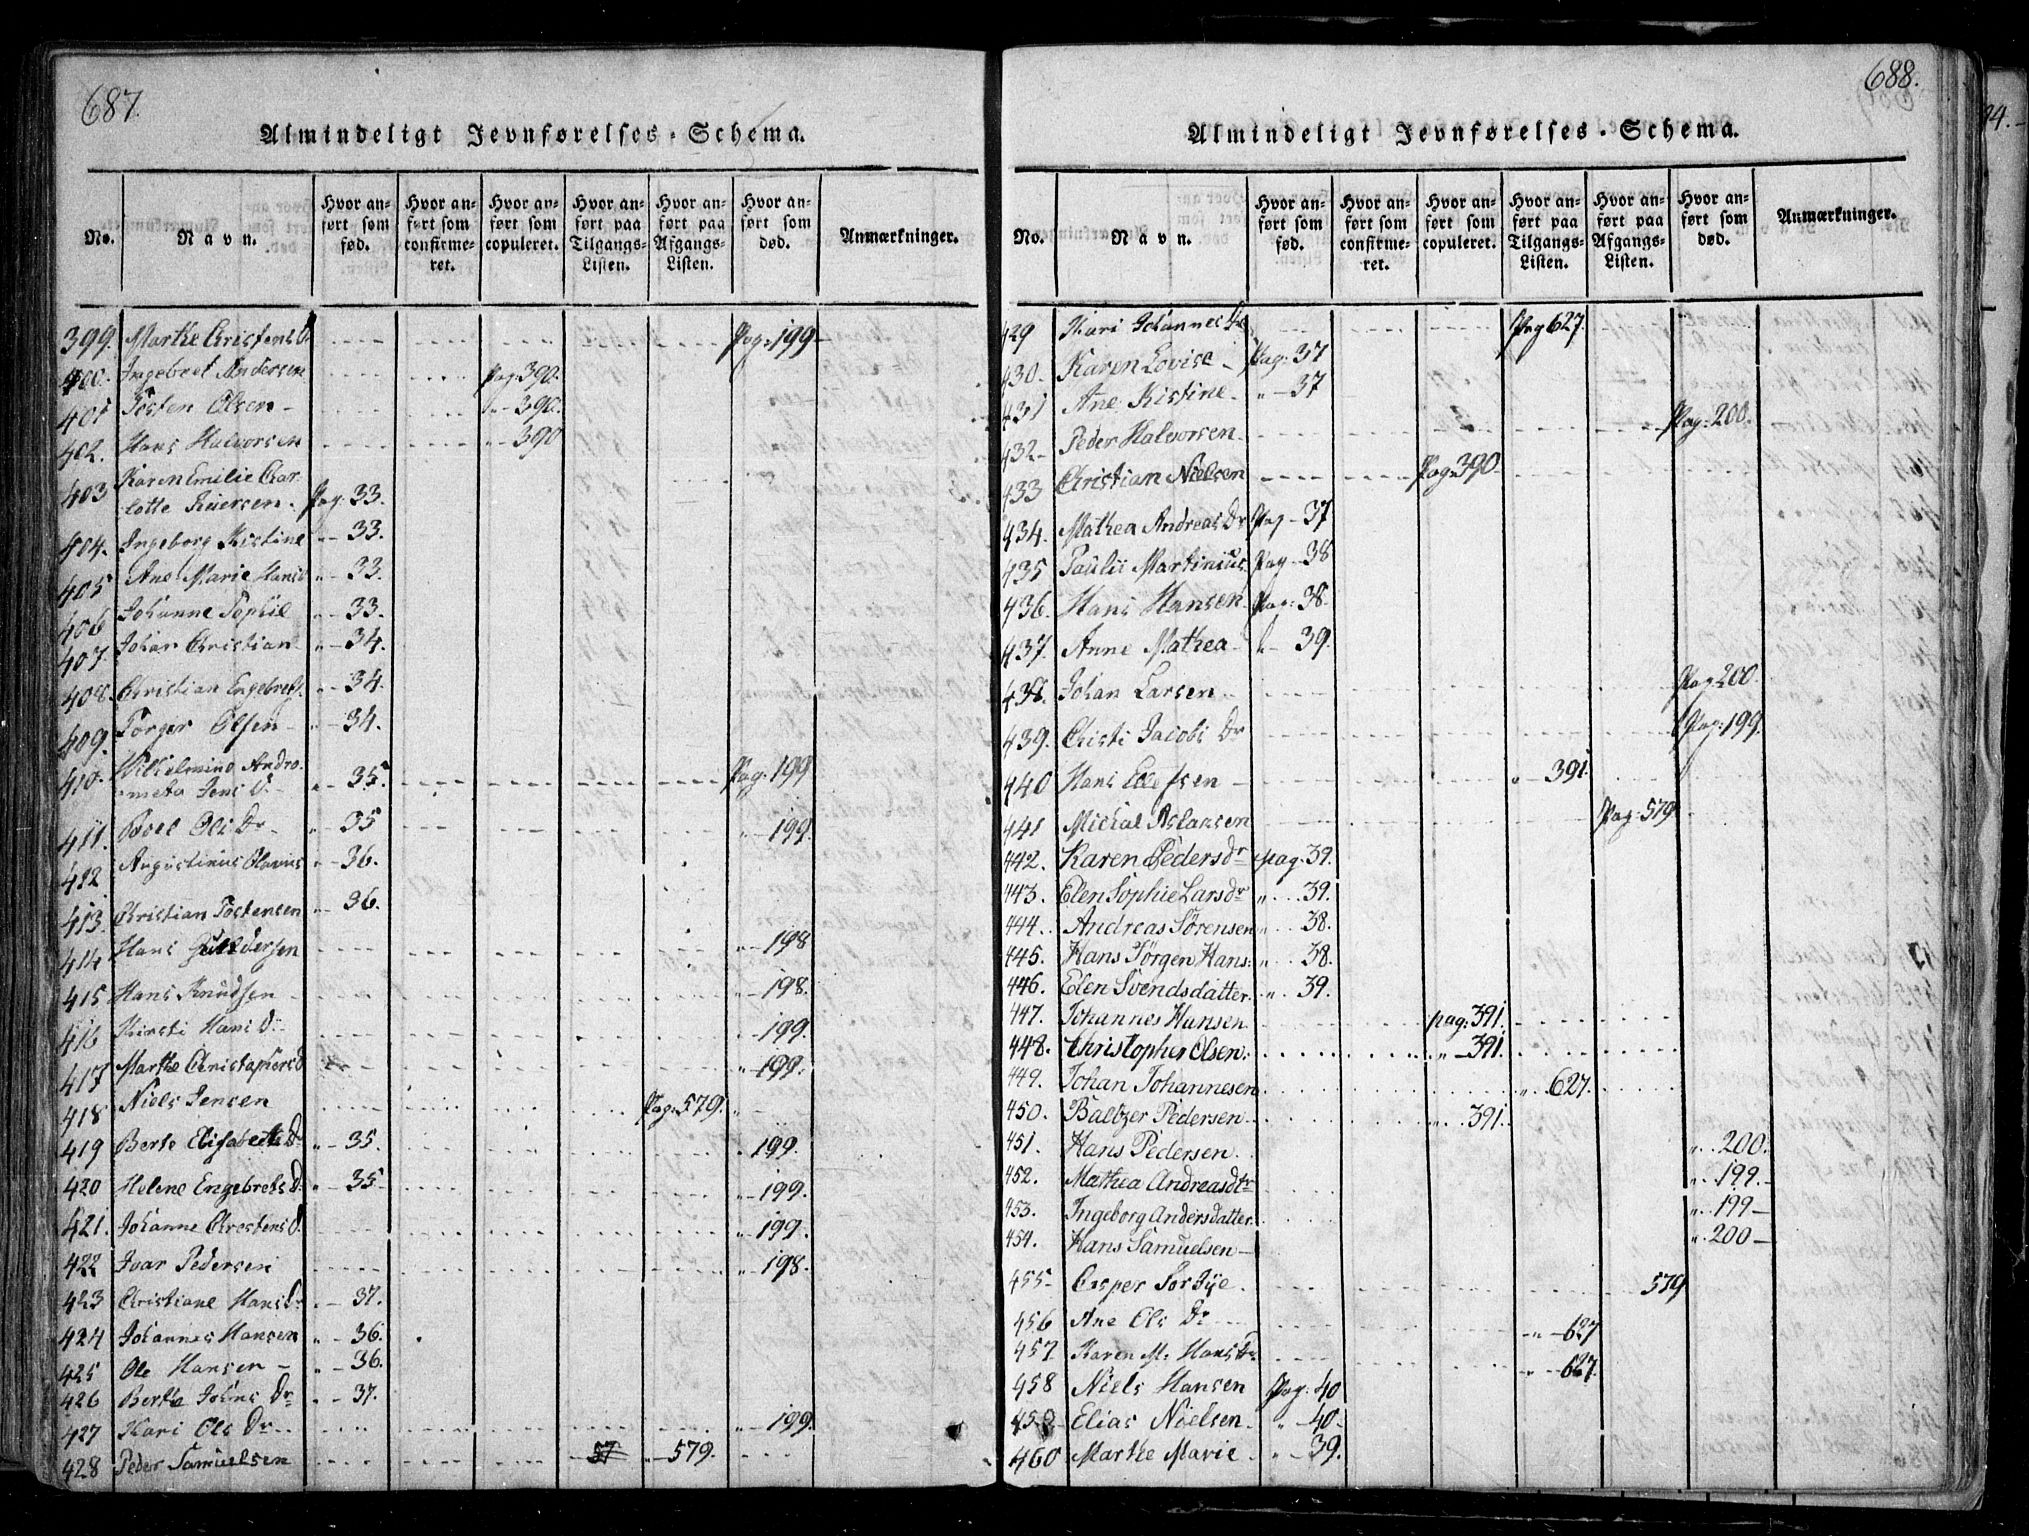 687.
Almindeligt Jevnførelses-Schema.
No.
Navn.
Hvor an-
ført som
fød.
Hvor an-
ført som
confirme-
ret.
Hvor an-
ført som
copuleret.
Hvor an-
ført paa
Tilgangs-
Listen.
Hvor an-
ført paa
Afgangs-
Listen.
Hvor an-
ført som
død.
Anmærkninger.
399. Marthe Christens D. Pag: 199
400. Ingebret Andersen Pag: 390.
401 Tosten Olsen " 390.
402. Hans Halvorsen " 390
403 Karen Emilie Char
lotte Siversen. Pag: 33.
404. Ingeborg Kistine " 33.
405 Ane Marie Hans " 33.
406 Johanne Sophie " 33.
407. Johan Christian " 34.
408. Christian Engebrets. " 34.
409. Torger Olsen " 34.
410. Wilhelmine Andro-
meta Jens D. " 35. Pag: 199
411. Boel Ols Dr " 35 " 199.
412 Augustinus Olavius " 36.
413. Christian Tostensen " 36.
414 Hans Guldersen " 198
415 Hans Knudsen " 198.
416 Kirsti Hans Dr " 199.
417 Marthe Christophers d " 199.
418 Niels Jensen Pag: 579. "
419 Berte Elisabeth Dr " 35. " 199.
420 Helene Engebrets D. " 35 " 199.
421. Johanne Chrestens D. " 199.
422 Ivar Pedersen " 198.
423 Christiane Hans Dr " 37.
424 Johannes Hansen " 36.
425 Ole Hansen " 36.
426 Berthe Johns Dr " 37.
427 Kari Ols Dr " 199.
428 Peder Samuelsen 57 " 579.
688.
Almindeligt Jevnførelses-Schema.
No.
Navn.
Hvor an-
ført som
fød.
Hvor an-
ført som
confirme-
ret.
Hvor an-
ført som
copuleret.
Hvor an-
ført paa
Tilgangs-
Listen.
Hvor an-
ført paa
Afgangs-
Listen.
Hvor an-
ført som
død.
Anmærkninger.
429 Kari Johannes Dr Pag 627.
430. Karen Lovise Pag: 37
431 Ane Kistine " 37
432 Peder Halvorsen. Pag: 200.
433 Christian Nielsen Pag: 390.
434. Mathea Andreas Dr Pag 37
435 Paulii Martinius. Pag 38
436. Hans Hansen Pag: 38.
437. Anne Mathea " 39.
438. Johan Larsen Pag 200.
439. Christi Jacobs Dr Pag: 199.
440 Hans Ellefsen " 391.
441 Michal Aslansen Pag: 579.
442. Karen Pedersdr pag. 39.
443. Elen Sophie Larsdr " 39.
444. Andreas Sörensen " 38.
445. Hans Jörgen Hans: " 38.
446. Elen Svendsdatter. " 39.
447. Johannes Hansen pag: 391.
448. Christopher Olsen. " 391.
449. Johan Johannesen " 627.
450. Baltzer Pedersen " 391.
451. Hans Pedersen. " 200.
452. Mathea Andreasdtr " 199.
453. Ingeborg Andersdatter. " 199
454. Hans Samuelsen " 200
455 Casper Sorbye. 579
456 Ane Ols Dr " 627
457 Karen M. Hans Dr " 627.
458 Niels Hansen Pag: 40
459 Elias Nielsen " 40
460 Marthe Marie " 39.
94.